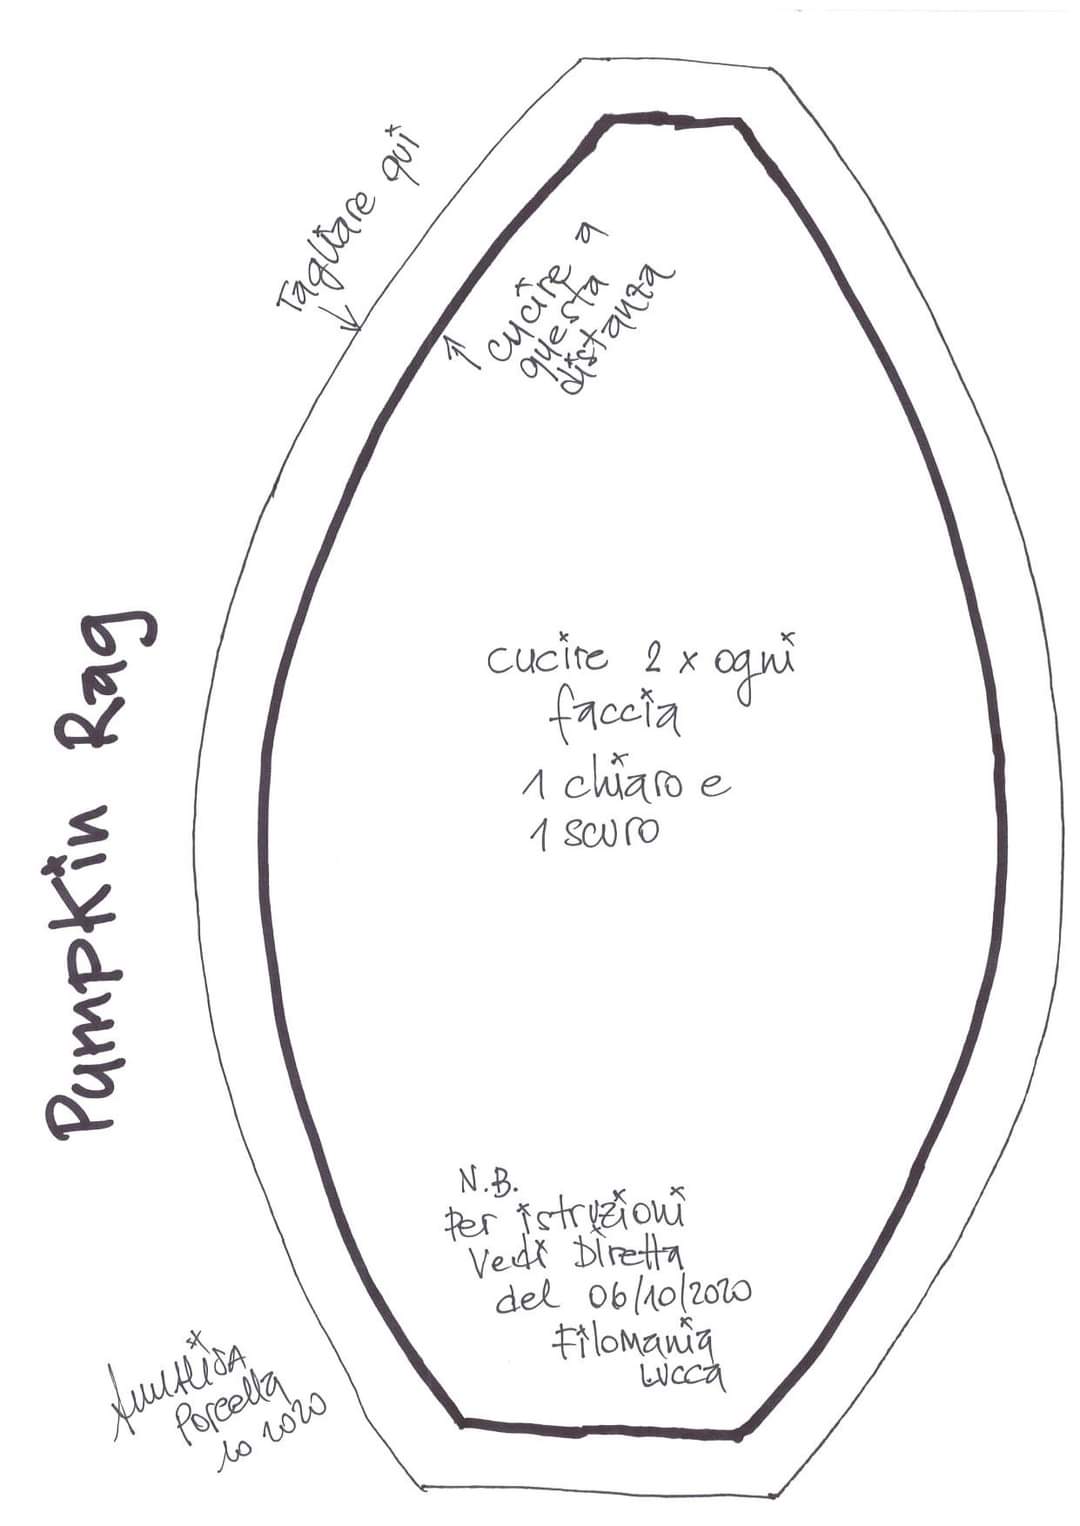 Tagliare qui
cucire a
questa
distanza
Pumpkin Rag
cucire 2 x ogni
faccia
1 chiaro e
1 scuro
N.B.
Per istruzioni
Vedi Diretta
del 06/10/2020
Filomania
Lucca
Porcella
10 2020